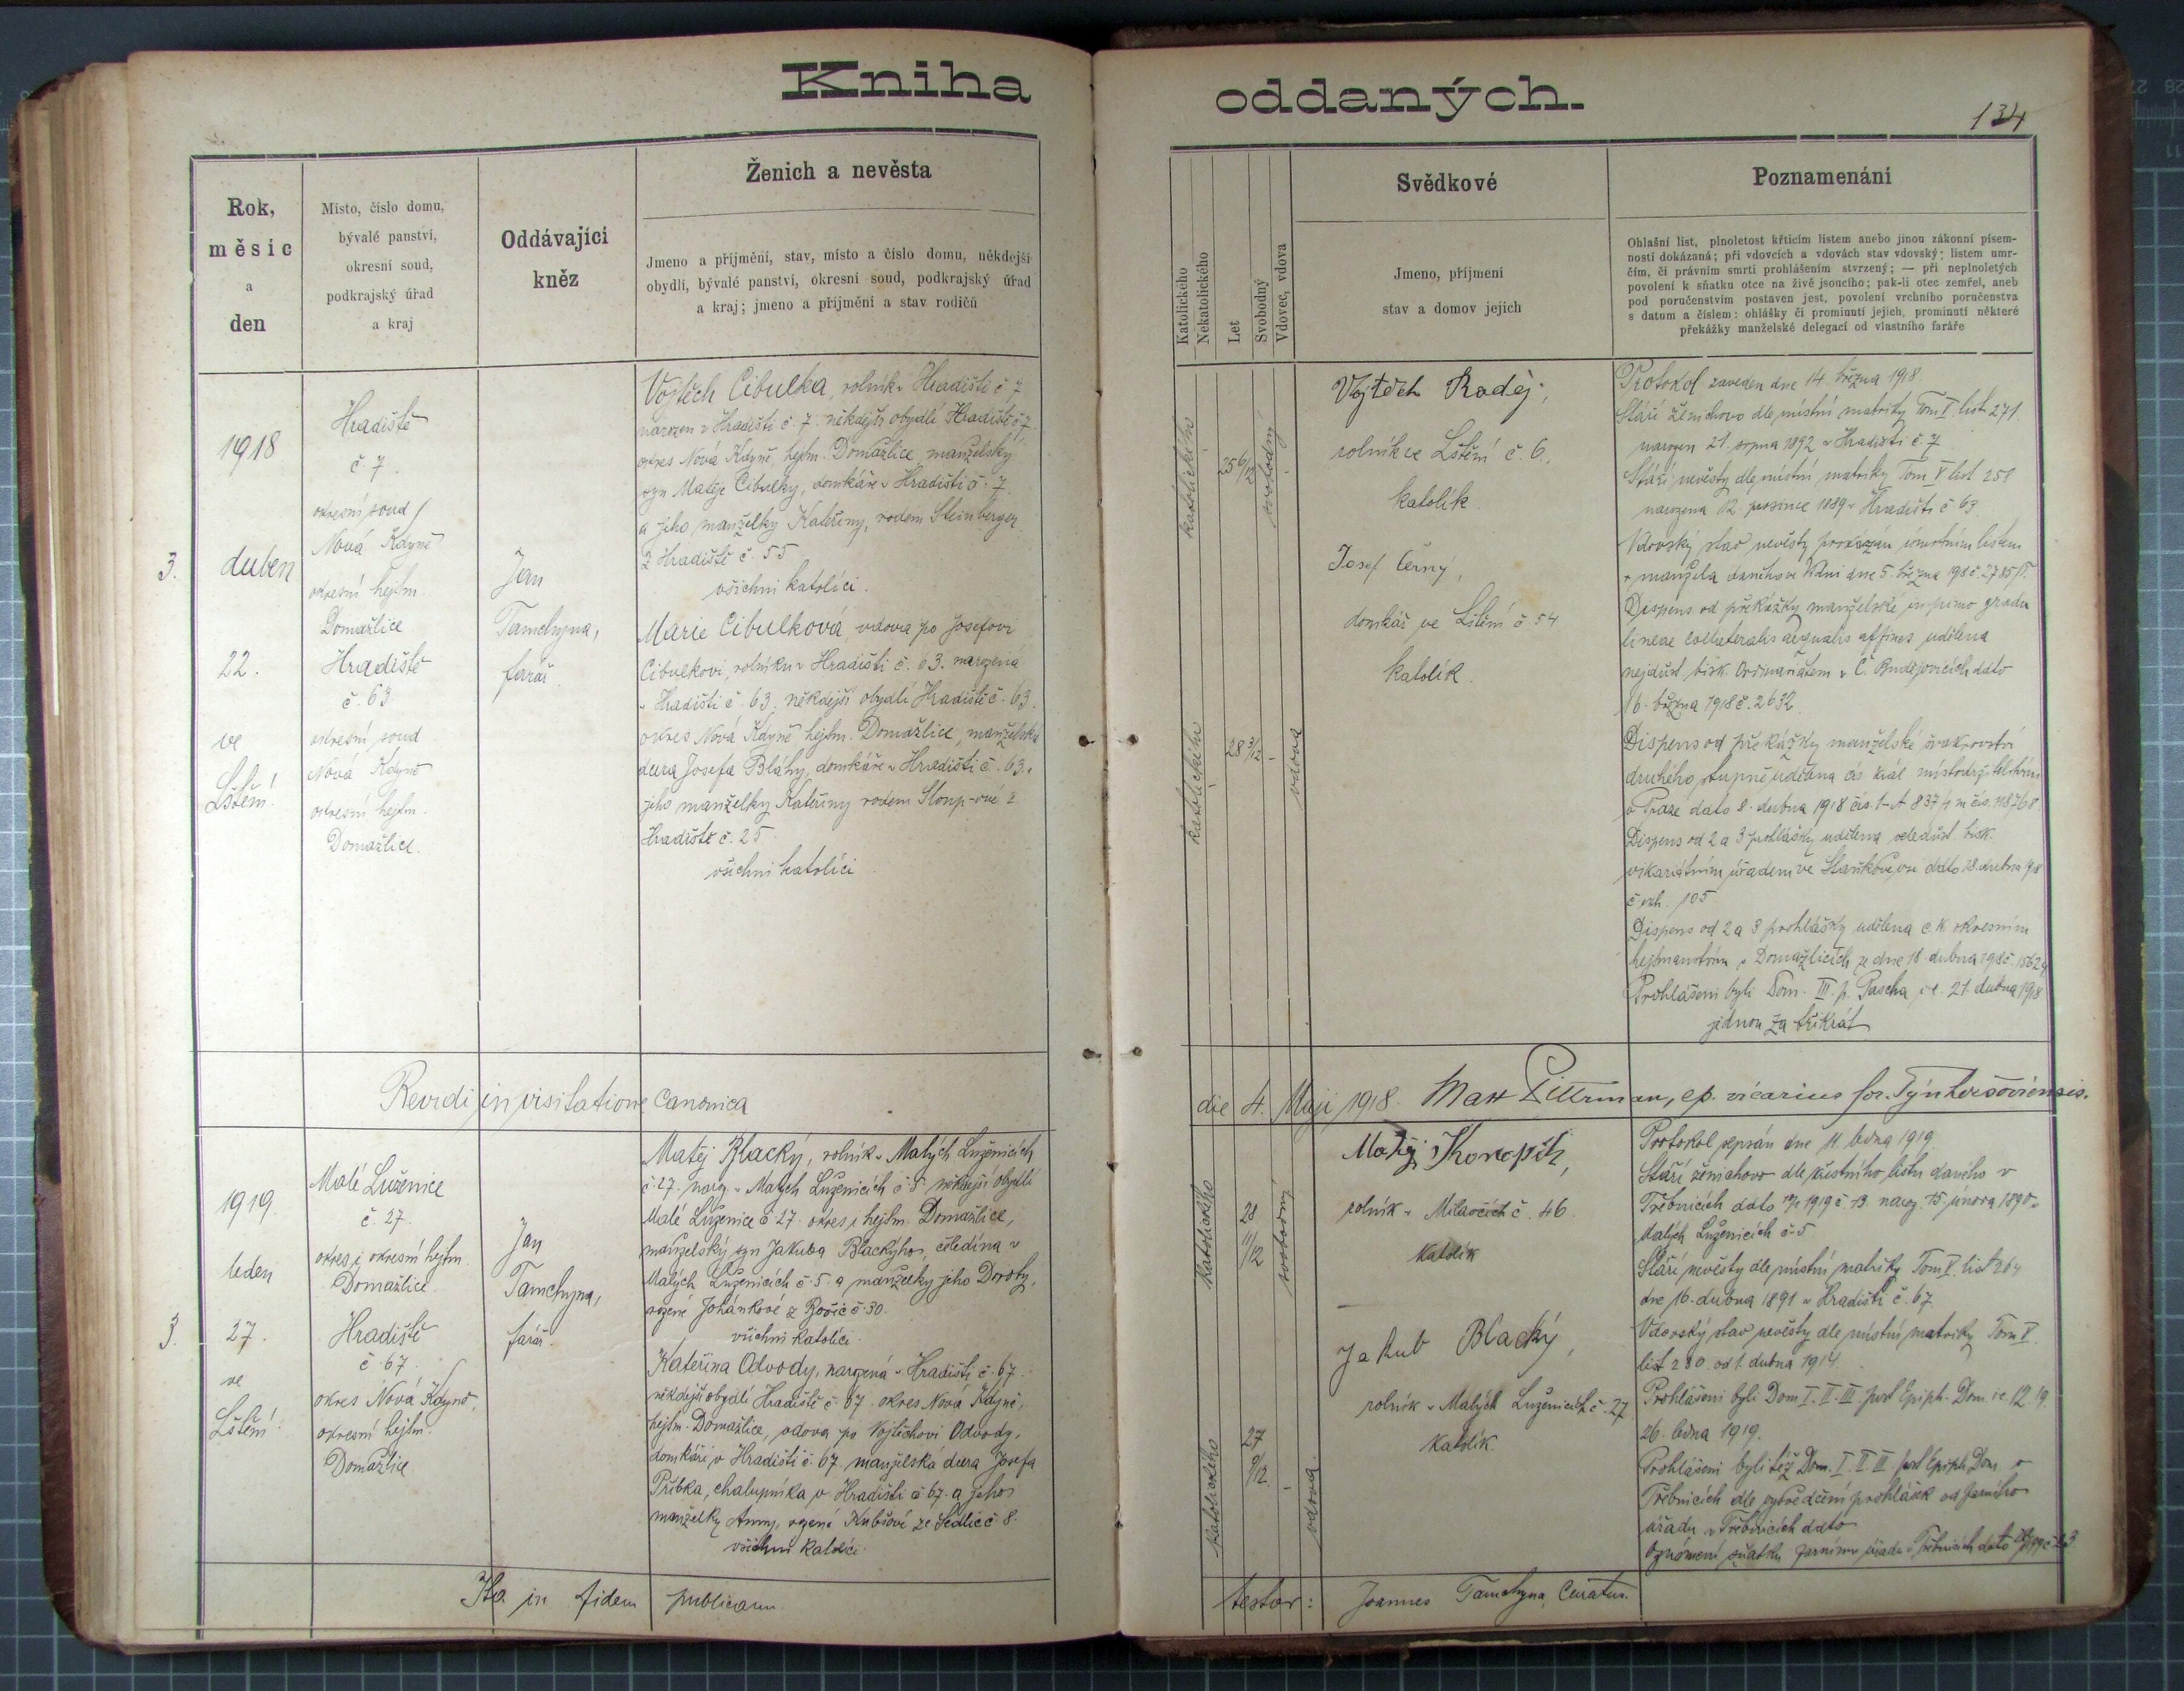 Kniha
oddaných.
134
Rok,
měsíc
a
den
Místo, číslo domu,
bývalé panství,
okresní soud,
podkrajský úřad
a kraj
Oddávající
kněz
Ženich a nevěsta
Jmeno a příjmění, stav, místo a číslo domu, někdejší
obydlí, bývalé panství, okresní soud, podkrajský úřad
a kraj; jmeno a příjmění a stav rodičů
Katolického
Nekatolického
Let
Svobodný
Vdovec, vdova
Svědkové
Jmeno, příjmení
stav a domov jejich
Poznamenání
Ohlašní list, plnoletost křticím listem anebo jinou zákonní písem-
ností dokázaná; při vdovcích a vdovách stav vdovský; listem umr-
čím, či právním smrti prohlášením stvrzený; — při neplnoletých
povolení k sňatku otce na živě jsoucího; pak-li otec zemřel, aneb
pod poručenstvím postaven jest, povolení vrchního poručenstva
s datum a číslem: ohlášky či prominutí jejich, prominutí některé
překážky manželské delegací od vlastního faráře
3.
1918
duben
22.
ve
Lštění
Hradiště
č 7.
okresní soud
Nová Kdyně
okresní hejtm.
Domažlice
Hradiště
č. 63
okresní soud
Nová Kdyně
okresní hejtm.
Domažlice.
Jan
Tamchyna,
farář.
Vojtěch Cibulka, rolník v Hradišti č 7
narozen v Hradišti č. 7. někdejší obydlí Hradiště č 7.
okres Nová Kdyně, hejtm. Domažlice, manželský
syn Matěje Cibulky, domkáře v Hradišti č. 7
a jeho manželky Kateřiny, rodem Steinberger
z Hradiště č. 55
všichni katolíci.
Marie Cibulková, vdova po Josefovi
Cibulkovi, rolníku v Hradišti č. 63. narozená
v Hradišti č. 63. někdejší obydlí Hradiště č. 63.
okres Nová Kdyně hejtm. Domažlice, manželská
dcera Josefa Bláhy, domkáře v Hradišti č. 63. a
jeho manželky Kateřiny rodem Sloup-ové z
Hradiště č. 25
všichni katolíci
katolického
25 6/12
svobodný
katolického
28 3/12
vdova
Vojtěch Raděj,
rolník ve Lštění č. 6.,
katolík.
Josef Černy,
domkář ve Lštění č 54
katolík.
Protokol zaveden dne 14. března 1918.
Stáří ženichovo dle místní matriky Tom V list 271.
narozen 21. srpna 1892 v Hradišti č. 7
Stáří nevěsty dle místní matriky Tom V list 258
narozena 12. prosince 1889 v Hradišti č 63.
Vdovský stav nevěsty prokázán úmrtním listem
manžela daného ve Vídni dne 5. března 1918 č. 2785/P.
Dispens od překážky manželské in primo gradu
lineae collateralis aequalis affines udělena
nejdůst. bisk. Ordinariátem v Č. Budějovicích ddto
16. března 1918 č. 2632
Dispens od překážky manželské švakrovství
druhého stupně udělena cís. král. místodržitelstvím
v Praze dato 8. dubna 1918
Dispens od 2 a 3 prohlášky udělena veledůst. bisk.
vikariátním úřadem ve Staňkově vsi ddto 18. dubna 1918
č exh. 105
Dispens od 2 a 3 prohlášky udělena c.k okresním
hejtmanstvím v Domažlicích ze dne 18. dubna 1918 č. 15624
Prohlášeni byli Dom. III. p. Pascha i.e. 21. dubna 1918
jednou za třikrát
Revidi in visitatione Canonica
die 4. Maji 1918. Matt Pittrman, ep. vicarius for. Týnhoršoviensis.
3.
1919.
leden
27.
ve
Lštění
Malé Luženice
č. 27.
okres i okresní hejtm
Domažlice.
Hradiště
č. 67
okres Nová Kdyně,
okresní hejtm.
Domažlice
Jan
Tamchyna,
farář.
Matěj Blacký, rolník v Malých Luženicích
č. 27. naroz. v Malých Luženicích č. 5. někdejší obydlí
Malé Luženice č 27. okres i hejtm. Domažlice,
manželský syn Jakuba Blackýho, čeledína v
Malých Luženicích č. 5. a manželky jeho Doroty,
rozené Johánkové z č. 30.
všichni katolíci.
Kateřina Odvody, narozená v Hradišti č. 67.
někdejší obydlí Hradiště č. 67. okres Nová Kdyně,
hejtm. Domažlice, vdova po Vojtěchovi Odvody,
domkáři v Hradišti č. 67. manželská dcera Josefa
Přibka, chalupníka v Hradišti č 67. a jeho
manželky Anny, rozené Kubšové ze Sedlic č 8.
všichni katolíci.
katolického
28
11/12
svobodný
katolického
27
9/12
vdova.
Matěj Konopík,
rolník v Milavčích č. 46.
katolík
Jakub Blacký,
rolník v Malých Luženicích č. 27
katolík.
Protokol sepsán dne 11. ledna 1919.
Stáří ženichovo dle křestního listu daného v
Třebnicích dato 1919 č. 13. naroz. 15 února 1890 v
Malých Luženicích č. 5
Stáří nevěsty dle místní matriky Tom V. list 264
dne 16. dubna 1891 v Hradišti č. 67.
Vdovský stav nevěsty dle místní matriky Tom V.
list 280. od 1. dubna 1914.
Prohlášeni byli Dom I. II. III. post Epiph. Dom. i.e. 12. 19.
26. ledna 1919.
Prohlášeni byli též Dom. I. II. III. post Epiph. Dom v
Třebnicích dle vysvědčení prohlášek od farního
úřadu v Třebnicích ddto
Oznámení sňatku farnímu úřadu v Třebnicích dato
Ita in fidem publicam
testor: Joannes Tamchyna, Curatus.